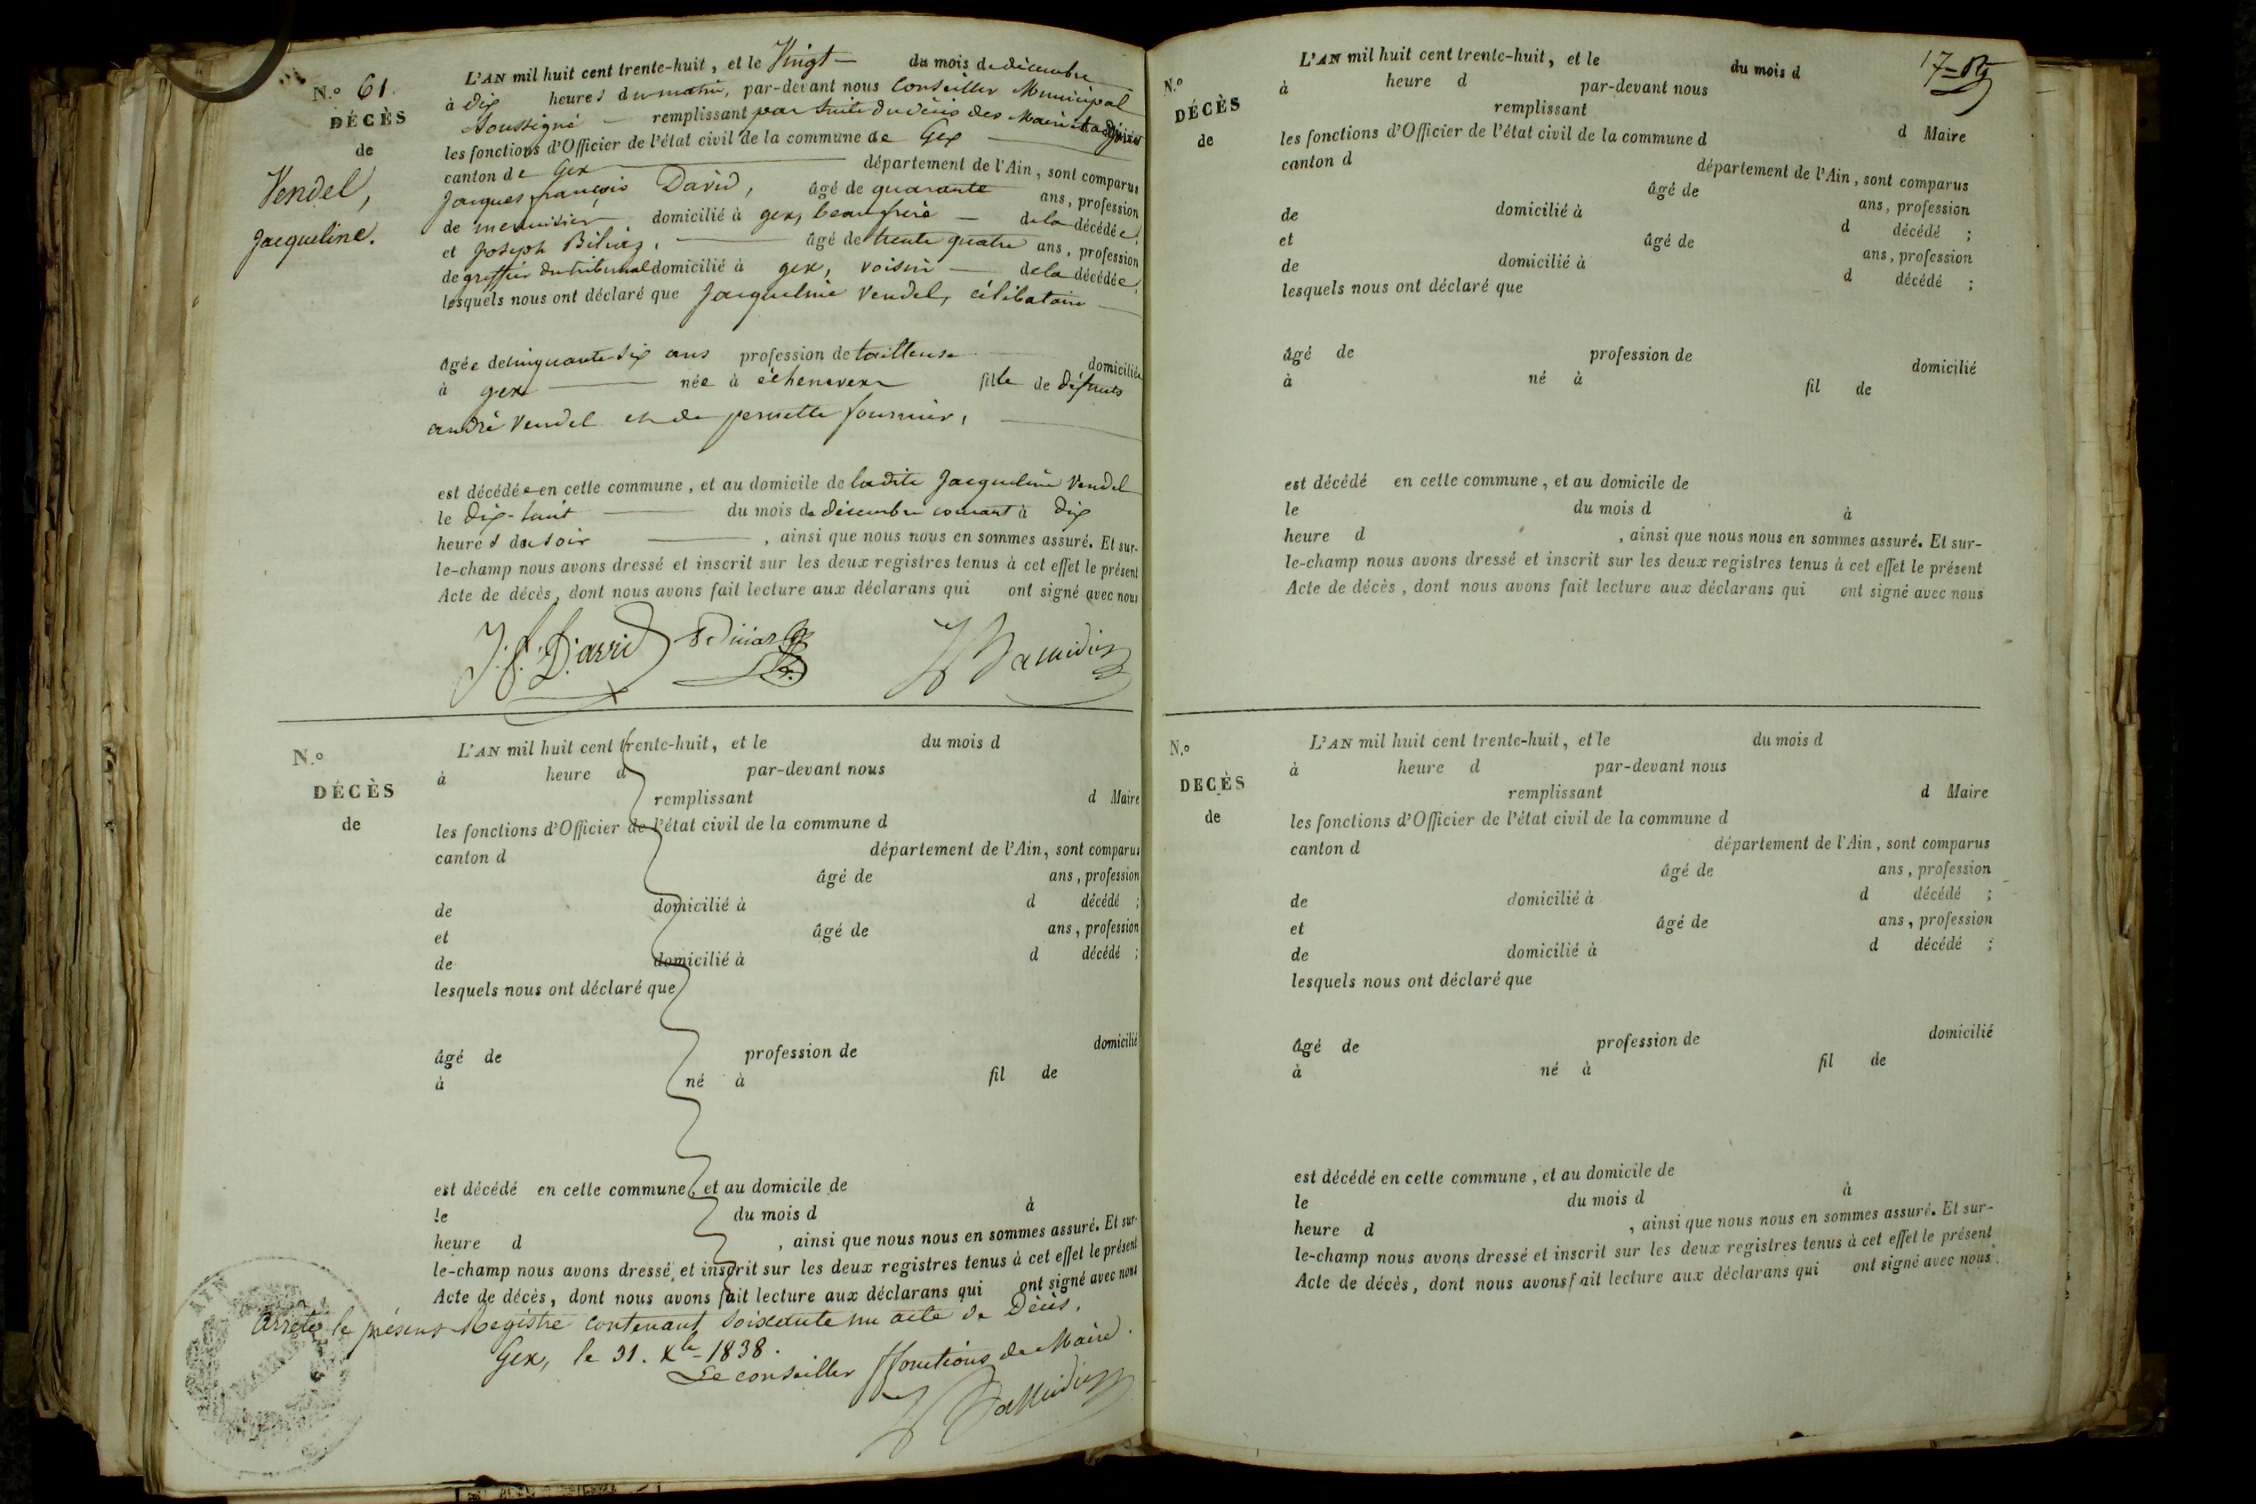 N.º 61.
DÉCÈS
de
Vendel,
Jacqueline.
L'AN mil huit cent trente-huit, et le Vingt — du mois de décembre
à dix heures du matin, par-devant nous Conseiller Municipal
Soussigné — remplissant par suite du décès des Maire et adjoint
les fonctions d'Officier de l'état civil de la commune de Gex
canton de Gex département de l'Ain, sont comparus
Jacques françois David, âgé de quarante ans, profession
de menuisier domicilié à gex, beaufrère — de la décédée;
et Joseph âgé de trente quatre ans, profession
de greffier du tribunal domicilié à gex, voisin — de la décédée,
lesquels nous ont déclaré que Jacqueline Vendel, célibataire
agée de cinquante-six ans profession de tailleuse domiciliée
à gex née à échenevex fille de défunts
andré Vendel et de pernette fournier,
est décédée en cette commune, et au domicile de ladite Jacqueline Vendel
le dix-huit du mois de décembre courant à dix
heures du soir , ainsi que nous nous en sommes assuré. Et sur-
le-champ nous avons dressé et inscrit sur les deux registres tenus à cet effet le présent
Acte de décès, dont nous avons fait lecture aux déclarans qui ont signé avec nous
J. f. David
N.º
DÉCÈS
de
L'AN mil huit cent trente-huit, et le du mois d
à heure d par-devant nous
remplissant d Maire
les fonctions d'Officier de l'état civil de la commune d
canton d département de l'Ain, sont comparus
âgé de ans, profession
de domicilié à d décédé ;
et âgé de ans, profession
de domicilié à d décédé ;
lesquels nous ont déclaré que
âgé de profession de domicilié
à né à fil de
est décédé en cette commune, et au domicile de
le du mois d à
heure d , ainsi que nous nous en sommes assuré. Et sur-
le-champ nous avons dressé et inscrit sur les deux registres tenus à cet effet le présent
Acte de décès, dont nous avons fait lecture aux déclarans qui ont signé avec nous
Arrêté le présent Registre contenant soixante un acte de Décès.
Gex, le 31. Xbre 1838.
Le conseiller ffonctions de Maire.
AIN
17
N.º
DÉCÈS
de
L'AN mil huit cent trente-huit, et le du mois d
à heure d par-devant nous
remplissant d Maire
les fonctions d'Officier de l'état civil de la commune d
canton d département de l'Ain, sont comparus
âgé de ans, profession
de domicilié à d décédé ;
et âgé de ans, profession
de domicilié à d décédé ;
lesquels nous ont déclaré que
âgé de profession de domicilié
à né à fil de
est décédé en cette commune, et au domicile de
le du mois d à
heure d , ainsi que nous nous en sommes assuré. Et sur-
le-champ nous avons dressé et inscrit sur les deux registres tenus à cet effet le présent
Acte de décès, dont nous avons fait lecture aux déclarans qui ont signé avec nous
N.º
DECÈS
de
L'AN mil huit cent trente-huit, et le du mois d
à heure d par-devant nous
remplissant d Maire
les fonctions d'Officier de l'état civil de la commune d
canton d département de l'Ain, sont comparus
âgé de ans, profession
de domicilié à d décédé ;
et âgé de ans, profession
de domicilié à d décédé ;
lesquels nous ont déclaré que
âgé de profession de domicilié
à né à fil de
est décédé en cette commune, et au domicile de
le du mois d à
heure d , ainsi que nous nous en sommes assuré. Et sur-
le-champ nous avons dressé et inscrit sur les deux registres tenus à cet effet le présent
Acte de décès, dont nous avons fait lecture aux déclarans qui ont signé avec nous